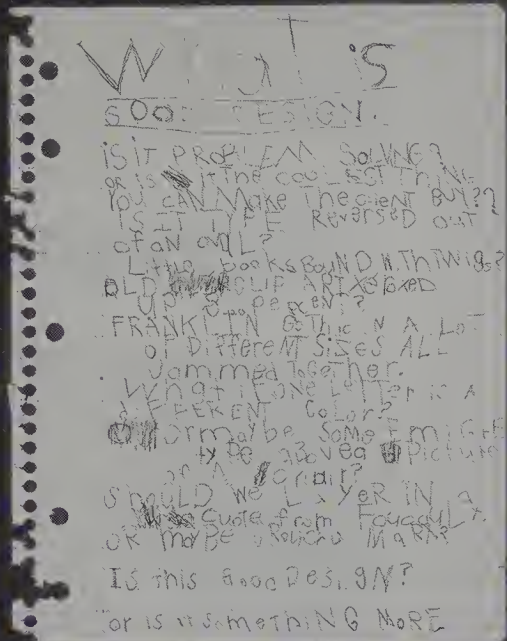 WHAT iS
GOOD DESIGN.
iS iT PROBLEM SOLViNG?
OR is it The COOLEST ThiNG
YOU CAN Make The client BUY??
IS IT TYPE Reversed out
of aN OVAL?
Little books BOUND WiTh TWiGs?
OLD CLIP ART XeROXED
percent?
FRANKLIN GoThic iN A LoT
OF DiffereNT SiZeS ALL
Jammed ToGether.
What if ONE LeTTer iS A
DiFFERENT COLOR?
Or maybe SOMe EmiGRE
type above a Picture
of A chair?
ShOULD We LAYER iN a
Quote from Foucault.
OR maybe MARX?
IS this Good DESiGN?
or is it SomethiNG MoRE